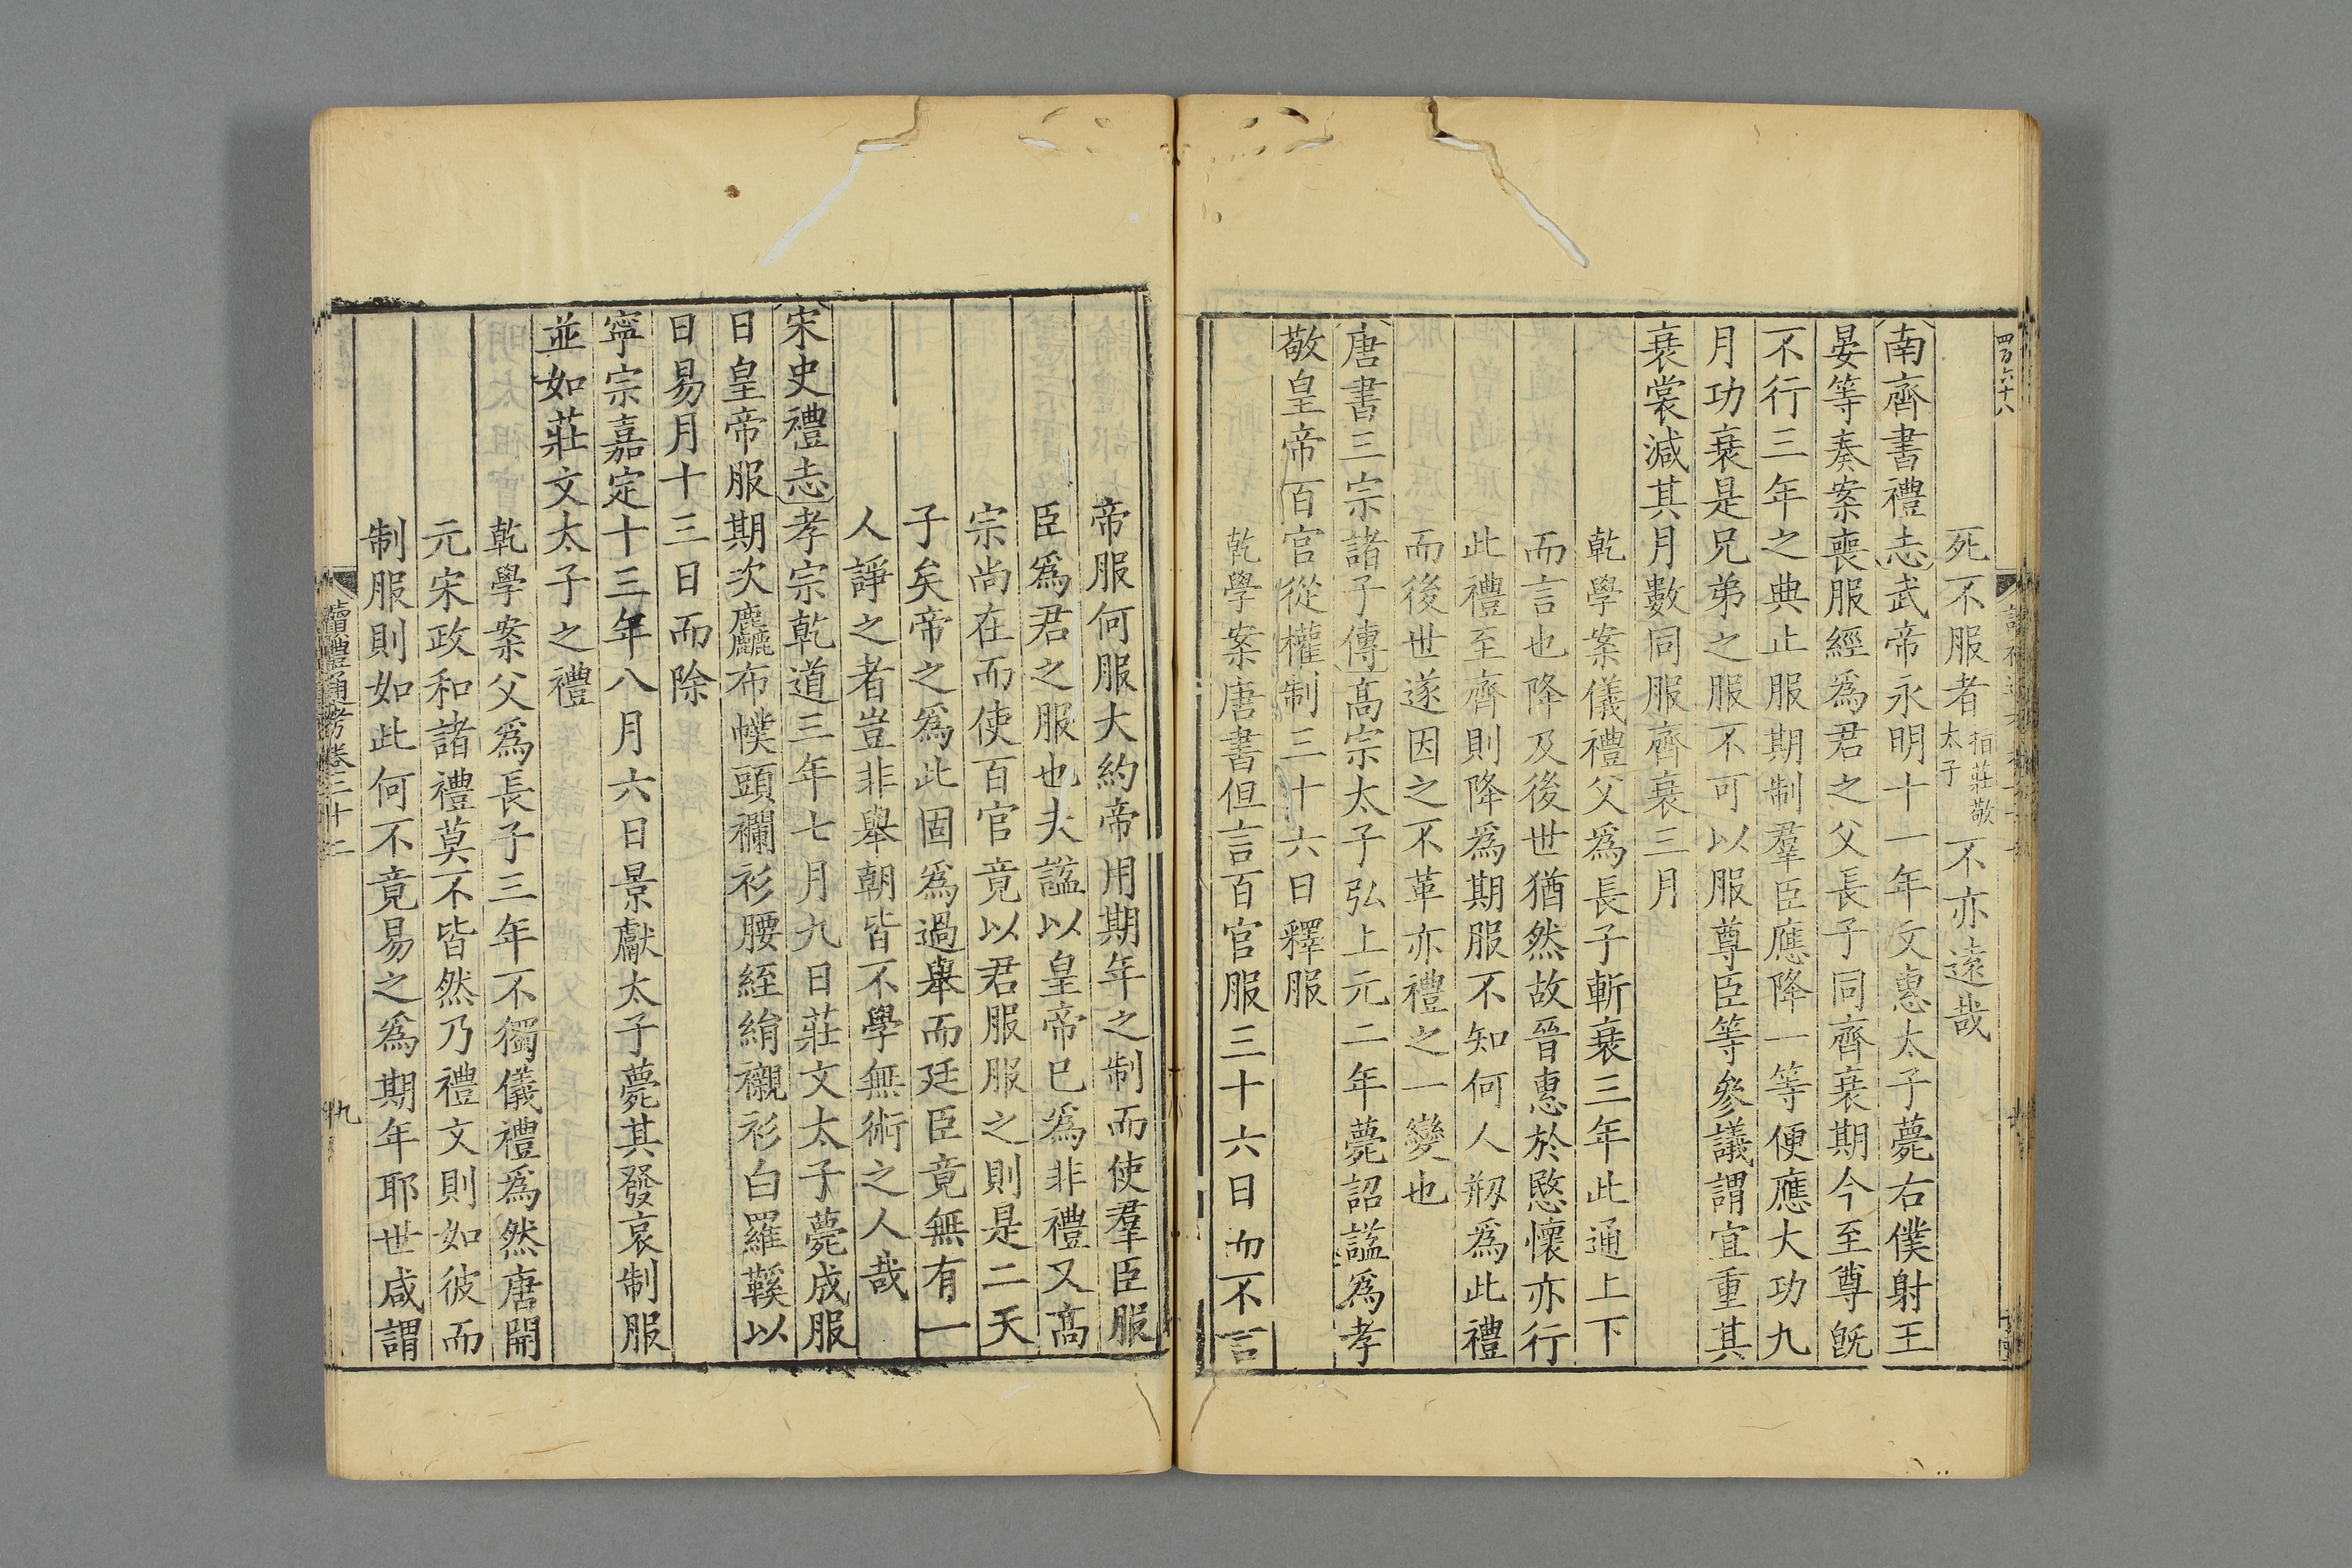 四百六十八
死不服者指莊敬太子不亦遠哉
南齊書禮志武帝永明十一年文惠太子薨右僕射王
晏等奏案喪服經爲君之父長子同齊衰期今至尊旣
不行三年之典止服期制羣臣應降一等便應大功九
月功衰是兄弟之服不可以服尊臣等參議謂宜重其
衰裳減其月數同服齊衰三月
乾學案儀禮父爲長子斬衰三年此通上下
而言也降及後世猶然故晉惠於愍懷亦行
此禮至齊則降爲期服不知何人剏爲此禮
而後世遂因之不革亦禮之一變也
唐書三宗諸子傳高宗太子弘上元二年薨詔諡爲孝
敬皇帝百官從權制三十六日釋服
乾學案唐書但言百官服三十六日而不言
帝服何服大約帝用期年之制而使羣臣服
臣爲君之服也夫諡以皇帝已爲非禮又高
宗尚在而使百官竟以君服服之則是二天
子矣帝之爲此固爲過舉而廷臣竟無有一
人諍之者豈非舉朝皆不學無術之人哉
宋史禮志孝宗乾道三年七月九日莊文太子薨成服
日皇帝服期次麤布幞頭襴衫腰絰絹襯衫白羅鞵以
日易月十三日而除
寧宗嘉定十三年八月六日景獻太子薨其發哀制服
並如莊文太子之禮
乾學案父爲長子三年不獨儀禮爲然唐開
元宋政和諸禮莫不皆然乃禮文則如彼而
制服則如此何不竟易之爲期年耶世咸謂
讀禮通考卷三十二
九